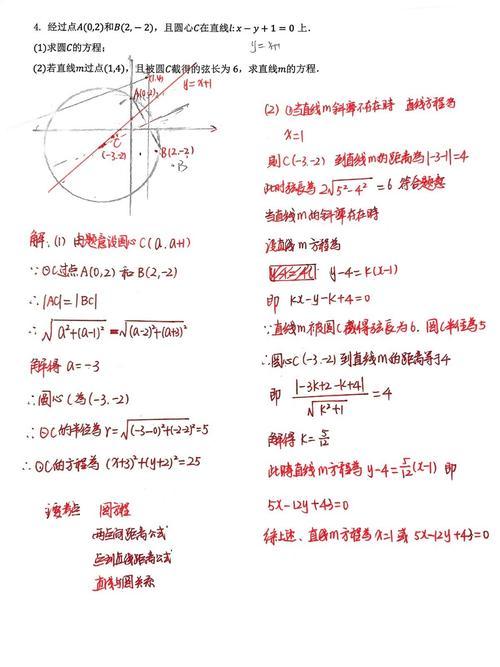 4. 经过点A(0,2)和B(2,−2)，且圆心C在直线l:x−y+1=0上.
(1)求圆C的方程；
y=x+1
(2)若直线m过点(1,4)，且被圆C截得的弦长为6，求直线m的方程.
(1,4)
y=x+1
A(0,2)
C
(-3,-2)
B(2,-2)
B
解. (1) 由题意设圆心C(a,a+1)
∵⊙C过点A(0,2)和B(2,-2)
∴|AC|=|BC|
∴√(a²+(a-1)²)=√((a-2)²+(a+3)²)
解得 a=-3
∴圆心C为(-3,-2)
∴⊙C的半径为r=√((-3-0)²+(-2-2)²)=5
∴⊙C的方程为(x+3)²+(y+2)²=25
主要考点 圆方程
两点间距离公式
点到直线距离公式
直线与圆关系
(2)①当直线m斜率不存在时 直线方程为
x=1
则C(-3,-2)到直线m的距离为|-3-1|=4
此时弦长为2√(5²-4²)=6 符合题意
当直线m的斜率存在时
设直线m方程为
y-4=k(x-1)
即 kx-y-k+4=0
∵直线m被圆C截得弦长为6.圆C半径为5
∴圆心C(-3,-2)到直线m的距离等于4
即 |-3k+2-k+4|/√(k²+1)=4
解得 k=5/12
此时直线m方程为y-4=5/12(x-1) 即
5x-12y+43=0
综上述、直线m方程为x=1或5x-12y+43=0